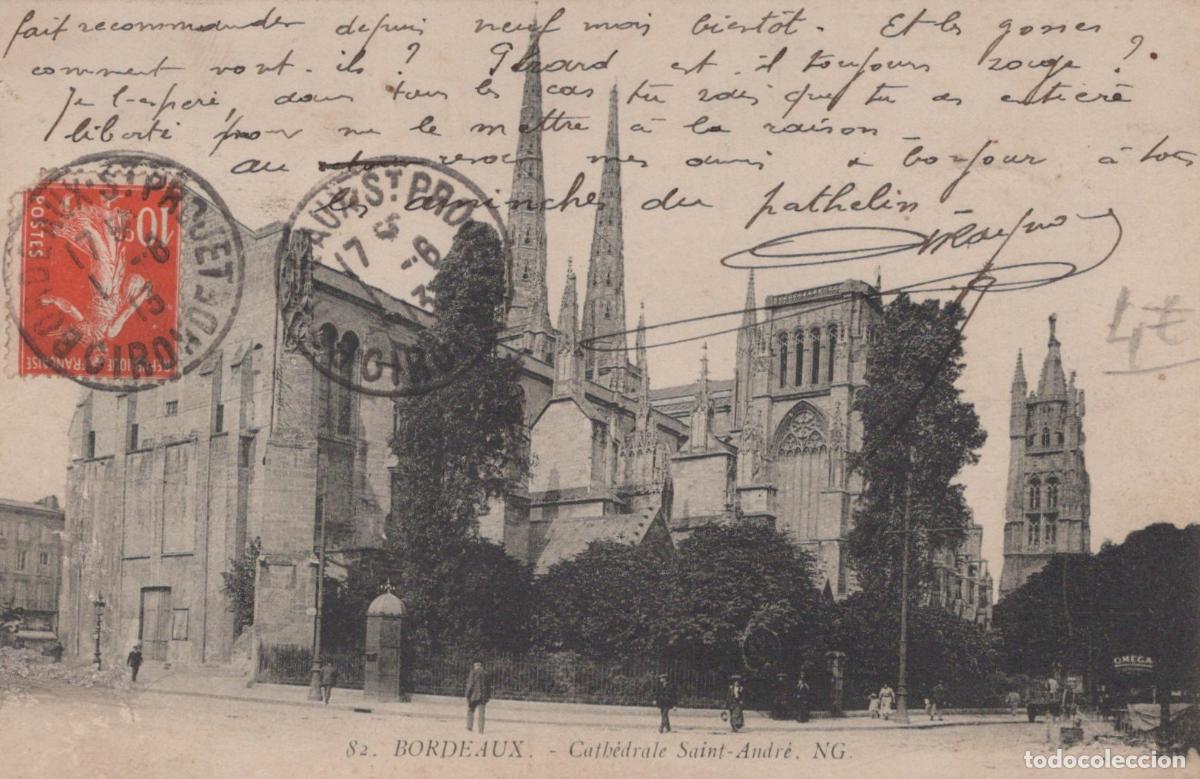 fait recommander depuis neuf mois bientôt. Et les gosses
comment vont-ils ? Gérard est-il toujours rouge ?
Je l'espère, dans tous les cas tu sais que tu as entière
liberté pour me le mettre à la raison -
au revoir mes amis & bonjour à tous
les dimanches du pathelin
POSTES
10c
RÉPUBLIQUE FRANÇAISE
BORDEAUX ST PROJET
GIRONDE
17 5 -6 13
4€
OMEGA
82. BORDEAUX. - Cathédrale Saint-André. NG.
todocoleccion